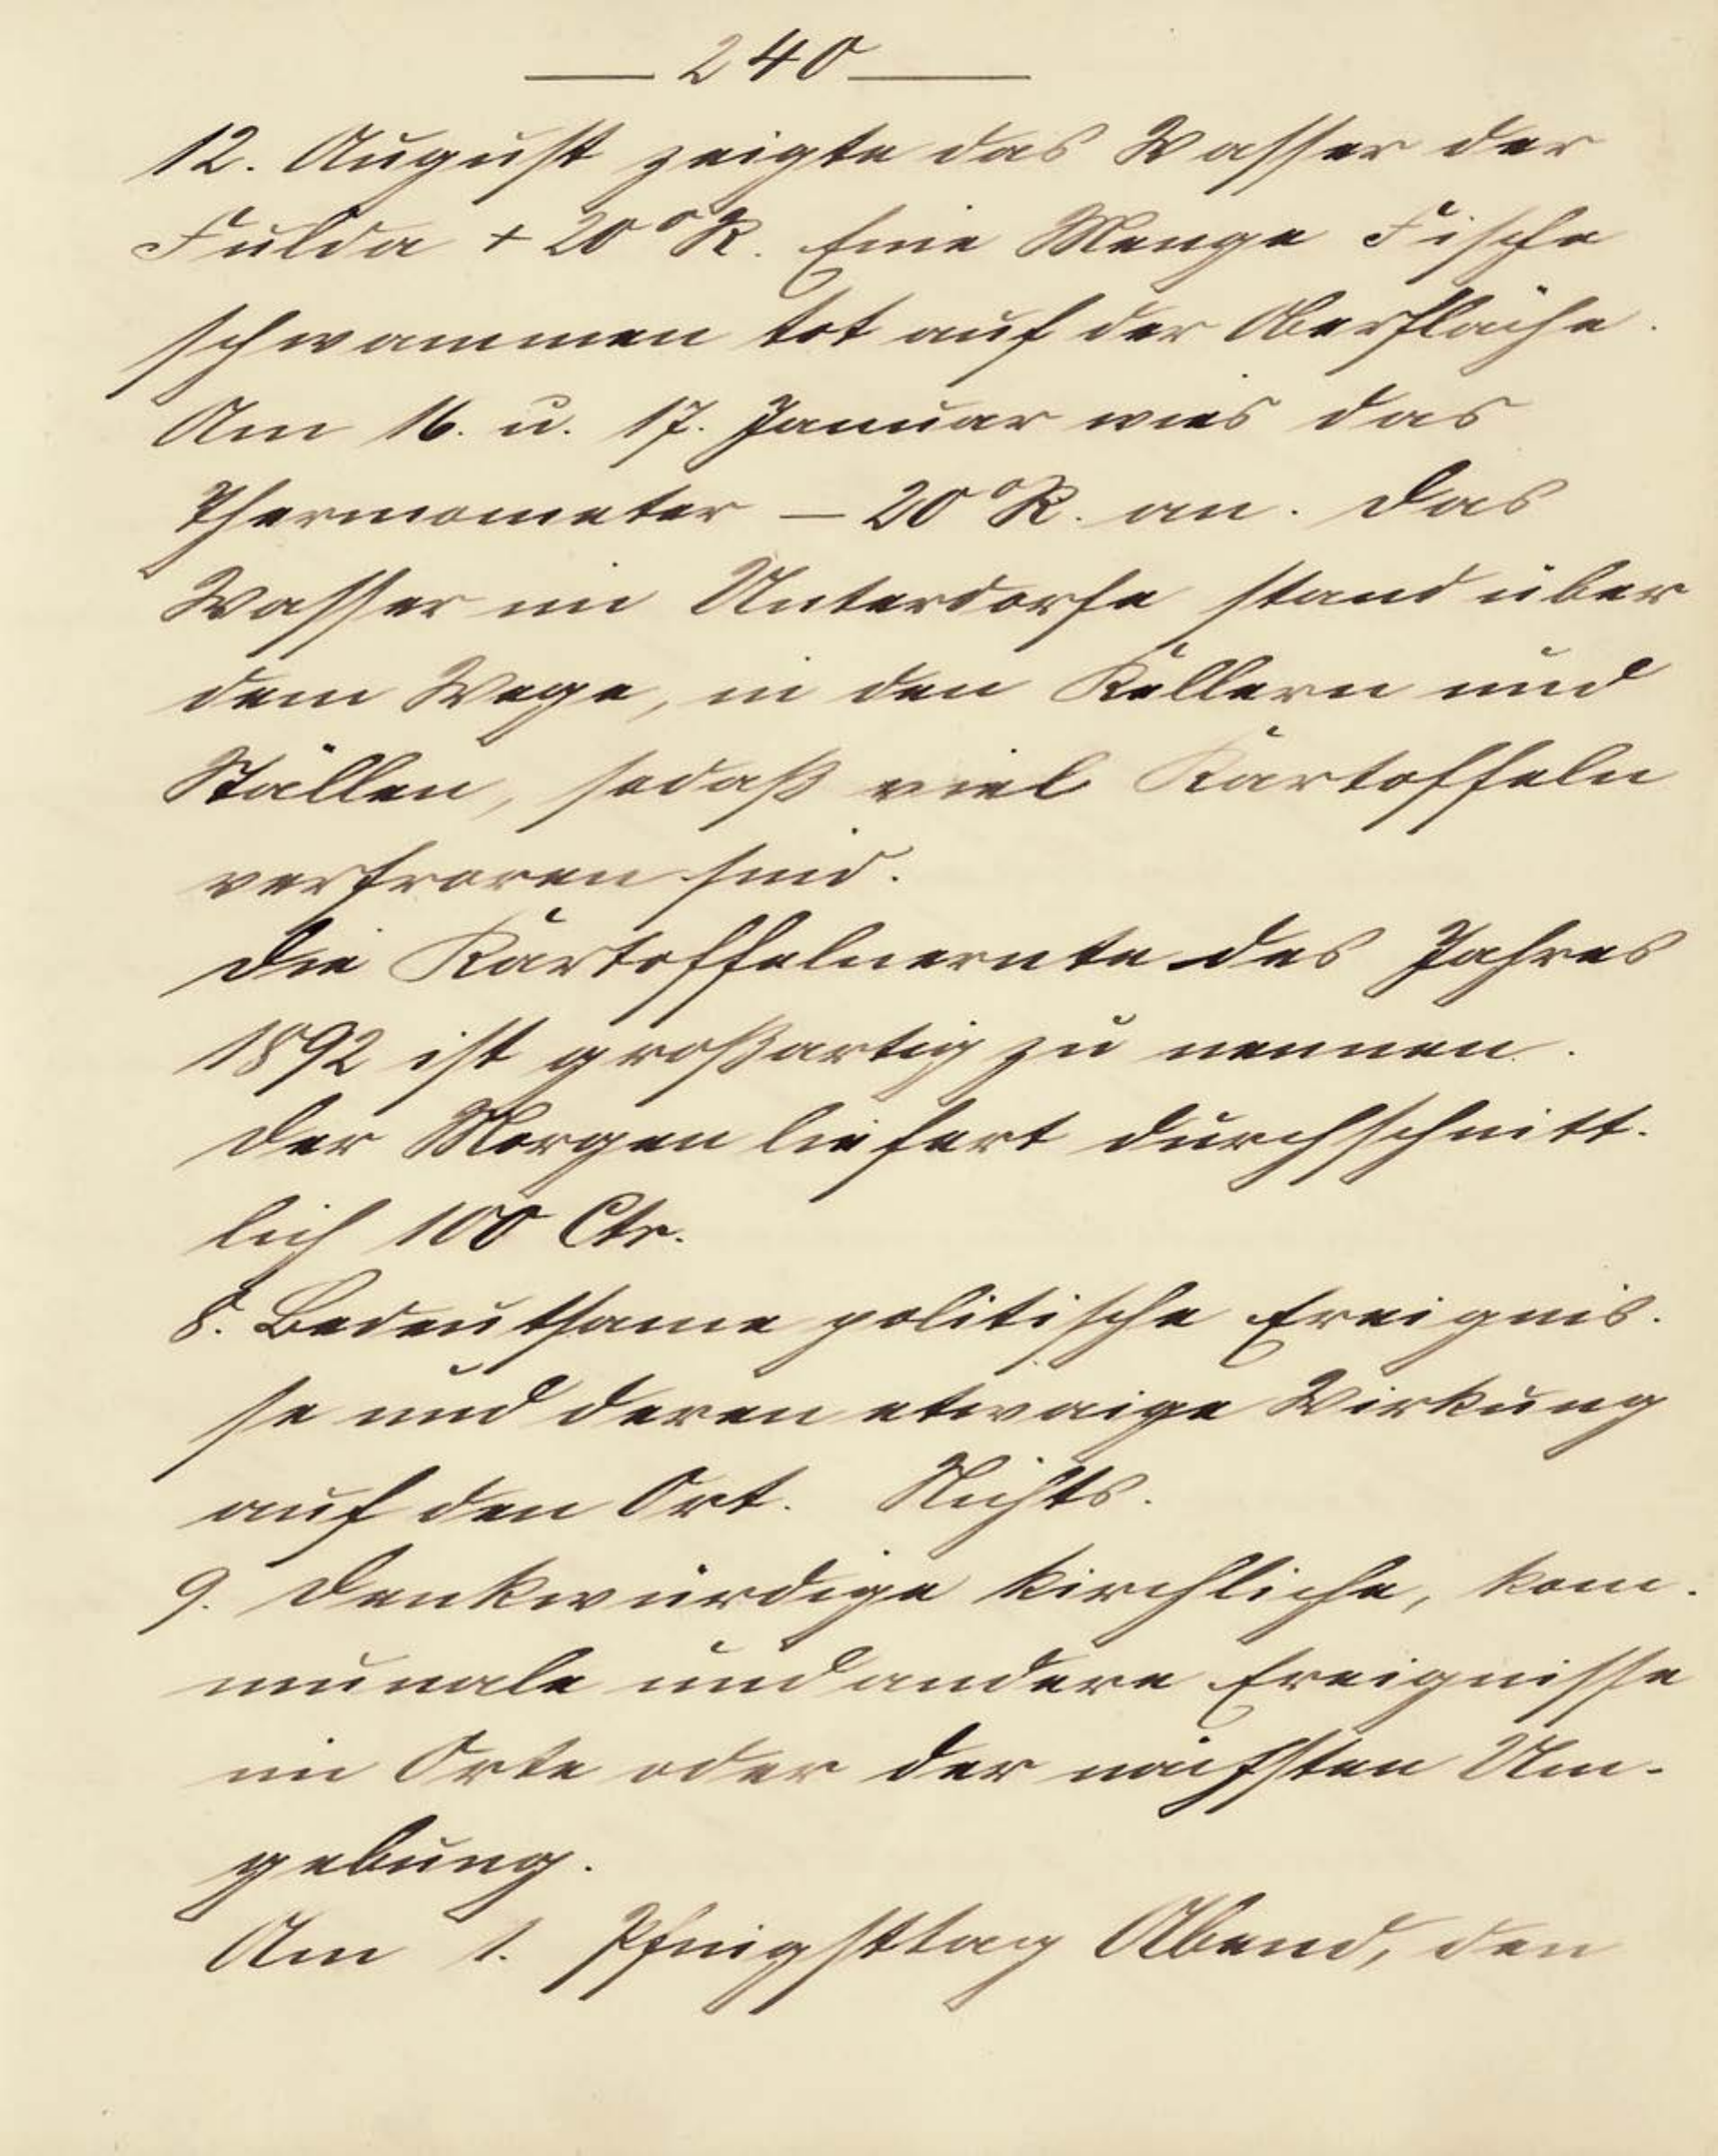 — 240 —
12. August zeigte das Wasser der
Fulda + 20° R. Eine Menge Fische
schwammen tot auf der Oberfläche.
Am 16. u. 17. Januar wies das
Thermometer – 20° R. an. Das
Wasser im Unterdorfe stand über
dem Wege, in den Kellern und
Ställen, sodaß viel Kartoffeln
verfroren sind.
Die Kartoffelnernte des Jahres
1892 ist großartig zu nennen.
Der Morgen liefert durchschnitt-
lich 100 Ctr.
8. Bedeutsame politische Ereignis-
se und deren etwaige Wirkung
auf den Ort. Nichts.
9. Denkwürdige kirchliche, kom-
munale und andere Ereignisse
im Orte oder der nächsten Um-
gebung.
Am 1. Pfingsttag Abend, den